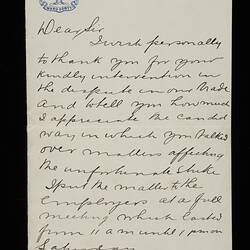 Dear Sir
I wish personally
to thank you for your
kindly intervention in
the dispute in our trade
and to tell you how much
I appreciate the candid
way in which you talked
over matters affecting
the unfortunate strike
I put the matter to the
employers at a full
meeting which lasted
from 11 a.m until 1 pm on